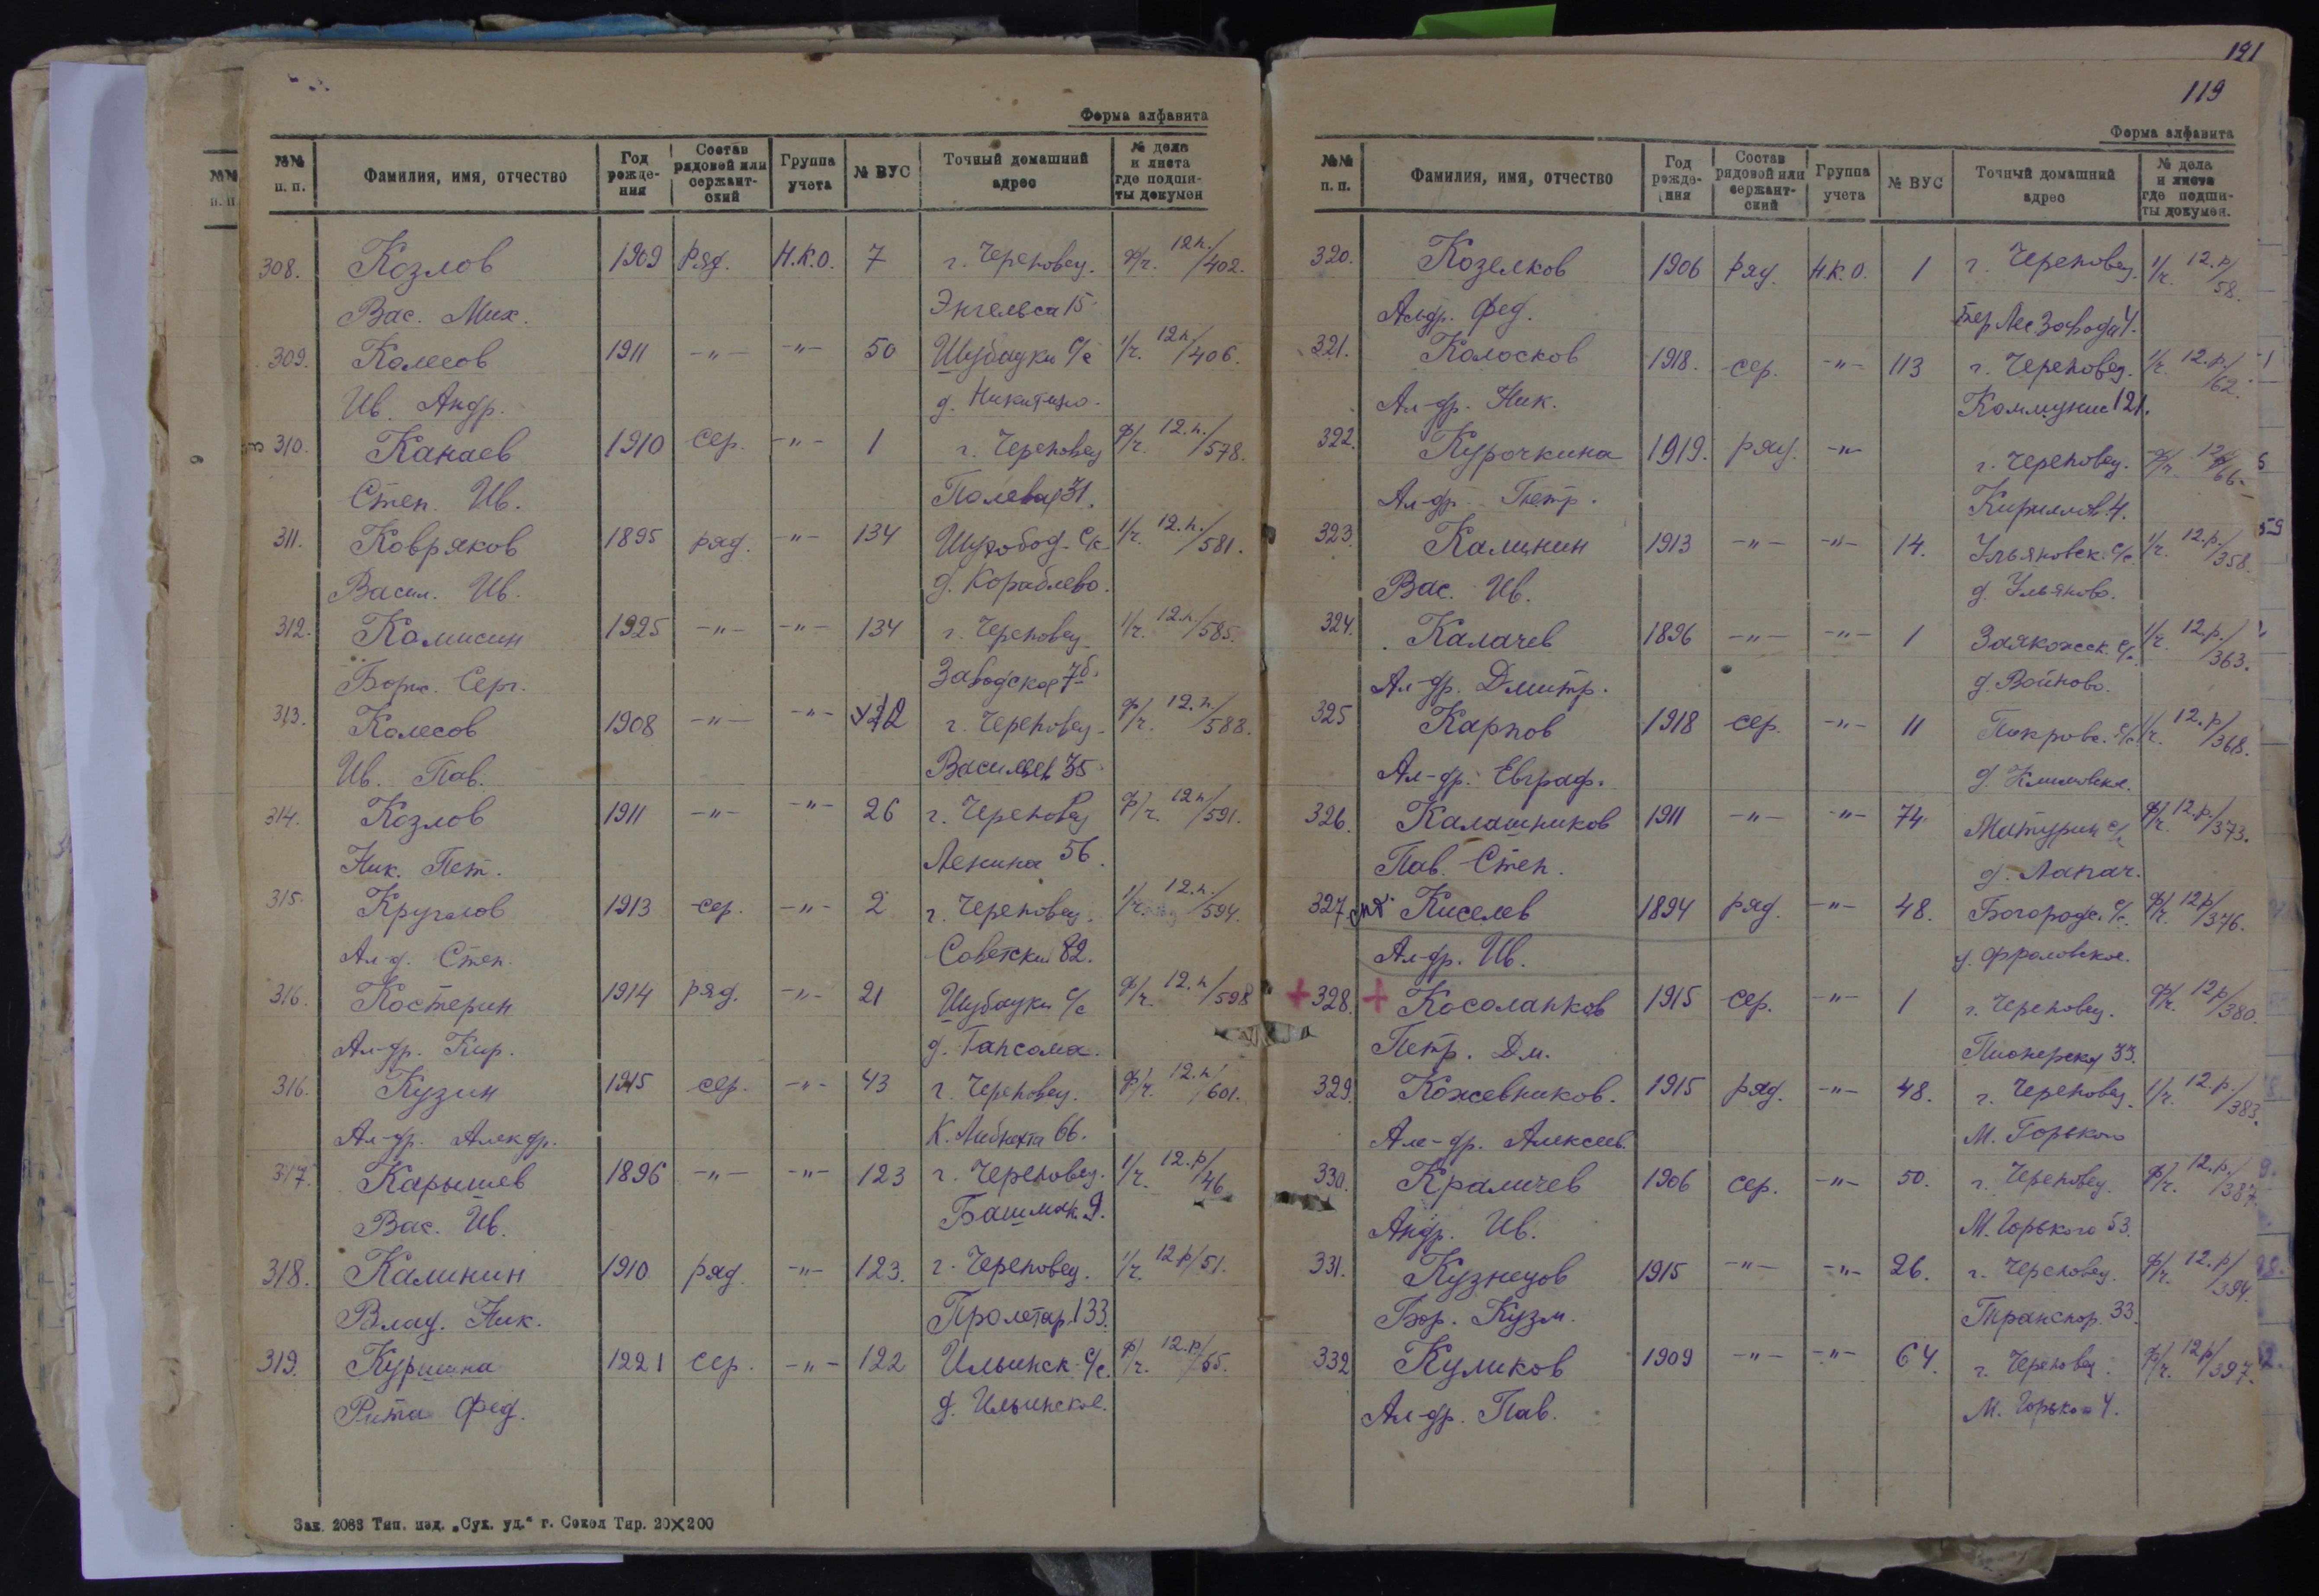 Форма алфавита
№№ п. п. Фамилия, имя, отчество Год рождения Состав рядовой или сержантский Группа учета № ВУС Точный домашний адрес № дела и листа где подшиты докумен
308. Козлов 1909 Ряд. Н.К.О. 7 г. Череповец. ф/г. 12п./402.
Вас. Мих. Энгельса 15.
309. Колесов 1911 -"- -"- 50 Шубацки с/с 1/г. 12п/406.
Ив. Андр. д. Никитино.
310. Канаев 1910 сер. -"- 1 г. Череповец ф/г. 12.п./578.
Степ. Ив. Полевая 31.
311. Ковряков 1895 ряд. -"- 134 1/г. 12.п./581.
Васил. Ив. д. Кораблево.
312. Камисин 1925 -"- -"- 134 г. Череповец. 1/г. 12.п/585.
Борис. Серг. Заводская 7б.
313. Колесов 1908 -"- -"- г. Череповец. ф/г. 12.п/588.
Ив. Пав. 35
314. Козлов 1911 -"- -"- 26 г. Череповец ф/г. 12п/591.
Ник. Пет. Ленина 56.
315. Круглов 1913 сер. -"- 2 г. Череповец. 1/г. 12.п./594.
Ал-д. Степ. Советский 82.
316. Костерин 1914 ряд. -"- 21 Шубацки с/с ф/г. 12.п/598
Ал-др. Кир. д. Гапсома.
316. Кузин 1915 сер. -"- 43 г. Череповец. ф/г. 12.п/601.
Ал-др. Алекдр. К. Либнехта 66.
317. Карышев 1896 -"- -"- 123 г. Череповец. 1/г. 12.р/46
Вас. Ив. Башмак. 9.
318. Калинин 1910 ряд. -"- 123. г. Череповец. 1/г. 12р/51.
Влад. Ник. Пролетар. 133.
319. Куршина 1221 сер. -"- 122 Ильинск. с/с. ф/г. 12.р/55.
Рита Фед. д. Ильинское.
Зак. 2083 Тип. изд. „Сух. уд." г. Сокол Тир. 20×200
121
119
Форма алфавита
№№ п. п. Фамилия, имя, отчество Год рождения Состав рядовой или сержантский Группа учета № ВУС Точный домашний адрес № дела и листа где подшиты докумен.
320. Козелков 1906 ряд. Н.К.О. 1 г. Череповец. 1/г. 12.р/58.
Альдр. Фед. Бер Лес Завода 4.
321. Колосков 1918. сер. -"- 113 г. Череповец. 1/г. 12.р./62.
Ал-др. Ник. Коммунис 121.
322. Курочкина 1919. ряд. -"- г. Череповец. ф/г. 12р/66.
Ал-др. Петр. Кириллов. 4.
323. Калинин 1913 -"- -"- 14. Ульяновск. с/с. 1/г. 12.р./358.
Вас. Ив. д. Ульяново.
324. Калачев 1896 -"- -"- 1 с/с. 1/г. 12.р./363.
Ал-др. Дмитр. д. Войново.
325 Карпов 1918 сер. -"- 11 Покровс. с/с 1/г. 12.р/368.
Ал-др. Евграф. д. Климовска.
326. Калашников 1911 -"- -"- 74 Матурин с/с ф/г. 12.р./373.
Пав. Степ. д. Лапач.
327. Киселев 1894 ряд. -"- 48. Богородс. с/с. ф/г. 12р/376.
Ал-др. Ив. д. Фроловское.
+ 328. + Косолапков 1915 сер. -"- 1 г. Череповец. ф/г. 12р/380.
Петр. Дм. Пионерская 33.
329. Кожевников. 1915 ряд. -"- 48. г. Череповец. 1/г. 12.р./383.
Але-др. Алексеев. М. Горького
330. Краличев 1906 сер. -"- 50. г. Череповец. ф/г. 12.р./387.
Андр. Ив. М. Горького 53.
331. Кузнецов 1915 -"- -"- 26. г. Череповец. ф/г. 12.р/394.
Бор. Кузм. Транспор. 33.
332 Куликов 1909 -"- -"- 64. г. Череповец. ф/г. 12р/397.
Ал-др. Пав. М. Горького 4.